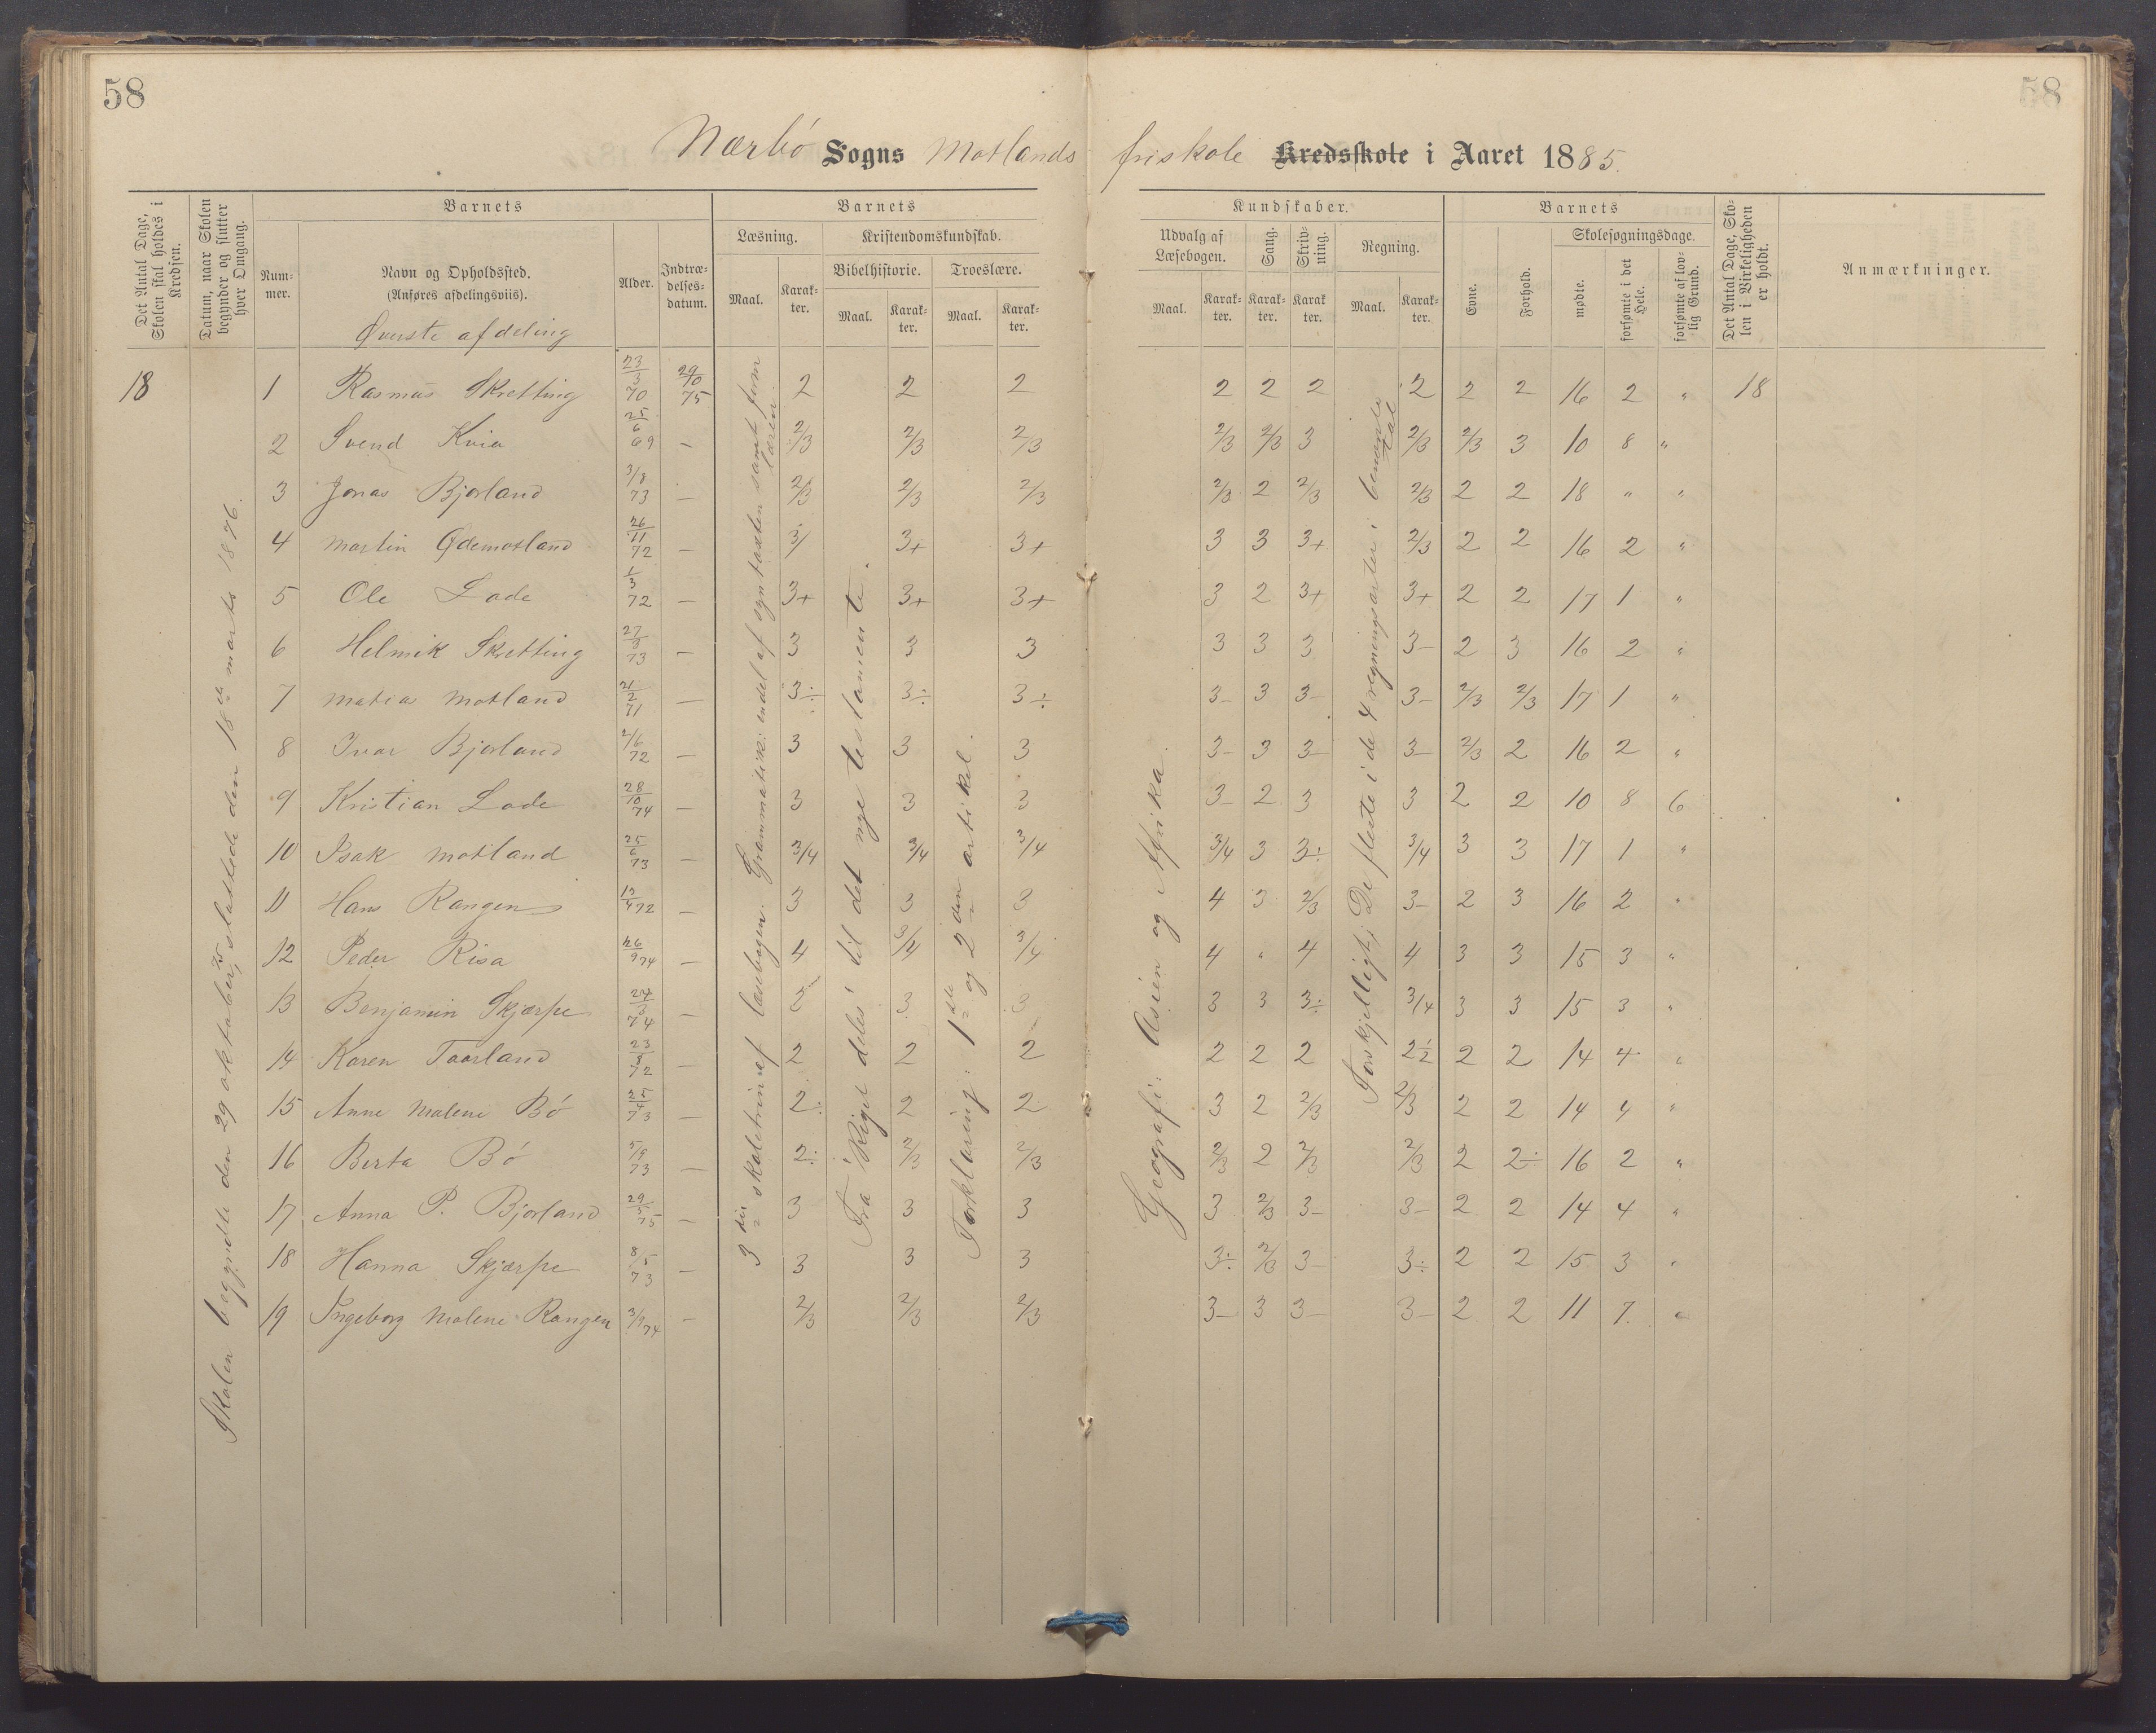 58
58
Nærbö Sogns Motlands friskole Kredsskole i Aaret 1885.
Det Antal Dage, Skolen skal holdes i Kredsen.
Datum, naar Skolen begynder og slutter hver Omgang.
Barnets
Num-mer.
Navn og Opholdssted.
(Anføres afdelingsviis).
Øverste afdeling
Alder.
Indtræ-delses-datum.
Barnets
Læsning.
Kristendomskundskab.
Bibelhistorie.
Troeslære.
Maal.
Karak-ter.
Maal.
Karak-ter.
Maal.
Karak-ter.
Kundskaber.
Udvalg af Læsebogen.
Sang.
Skriv-ning.
Regning.
Maal.
Karak-ter.
Karak-ter.
Karak-ter.
Maal.
Karak-ter.
Barnets
Evne.
Forhold.
Skolesøgningsdage.
mødte.
forsømte i det Hele.
forsømte af lov-lig Grund.
Det Antal Dage, Sko-len i Virkeligheden er holdt.
Anmærkninger.
18 1 Rasmus Skretting 23/3 70 29/10 75 2 2 2 2 2 2 2 2 2 16 2 " 18
2 Svend Kvia 25/6 69 – 2/3 2/3 2/3 2/3 2/3 3 2/3 2/3 3 10 8 "
3 Jonas Bjorland 3/8 73 – 2/3 2/3 2/3 2/3 2 2/3 2/3 2 2 18 " "
4 Martin Ødemotland 26/11 72 – 3/ 3+ 3+ 3 3 3+ 2/3 2 2 16 2 "
5 Ole Lode 1/3 72 – 3+ 3+ 3+ 3 2 3+ 3+ 2 2 17 1 "
6 Helmik Skretting 27/3 73 – 3 3 3 3 3 3 3- 2 3 16 2 "
7 Matias Motland 21/2 71 – 3÷ 3÷ 3÷ 3- 3 3- 3- 2/3 2/3 17 1 "
8 Ivar Bjorland 2/6 72 – 3 3 3 3- 3 3- 3- 2/3 2 16 2 "
9 Kristian Lode 28/10 74 – 3 3 3 3- 2 3 3 2 2 10 8 6
10 Isak Motland 25/6 73 – 3/4 3/4 3/4 3/4 3 3÷ 3/4 3 3 17 1 "
11 Hans Rangen 72 – 3 3 3 4 3 2/3 3- 2 3 16 2 "
12 Peder Risa 26/9 74 – 4 3/4 3/4 4 " 4 4 3 3 15 3 "
13 Benjamin Skjærpe 24/3 74 – 3 3 3 3 3 3÷ 3/4 3 3 15 3 "
14 Karen Taarland 23/3 72 – 2 2 2 2 2 2 2½ 2 2 14 4 "
15 Anne Malene Bö 73 – 2÷ 2 2 3 2 2/3 2/3 2 2 14 4 "
16 Berta Bö 5/9 73 – 2÷ 2/3 2/3 2/3 2 2/3 2/3 2 2÷ 16 2 "
17 Anna P. Bjorland 29/5 75 – 3 3 3 3 2/3 3- 3- 2 2 14 4 "
18 Hanna Skjærpe 8/5 73 – 3 3 3 3÷ 2/3 3- 3÷ 2 2 15 3 "
19 Ingeborg Malene Rangen 3/9 74 – 2/3 2/3 2/3 3- 3 3- 3- 2 2 11 7. "
Skolen begyndte den 29 oktober 75, sluttede den 18de marts 1876.
3die skoletrin af læsebogen. Grammatikk: endel af ogsaa samt form læren
Fra "Riget deles" til det nye testamente.
Forklaring: 1ste og 2den artikel.
Geografi: Asien og Afrika.
Forskjelligt; De fleste i de 4 regningsarter i benævnte tal